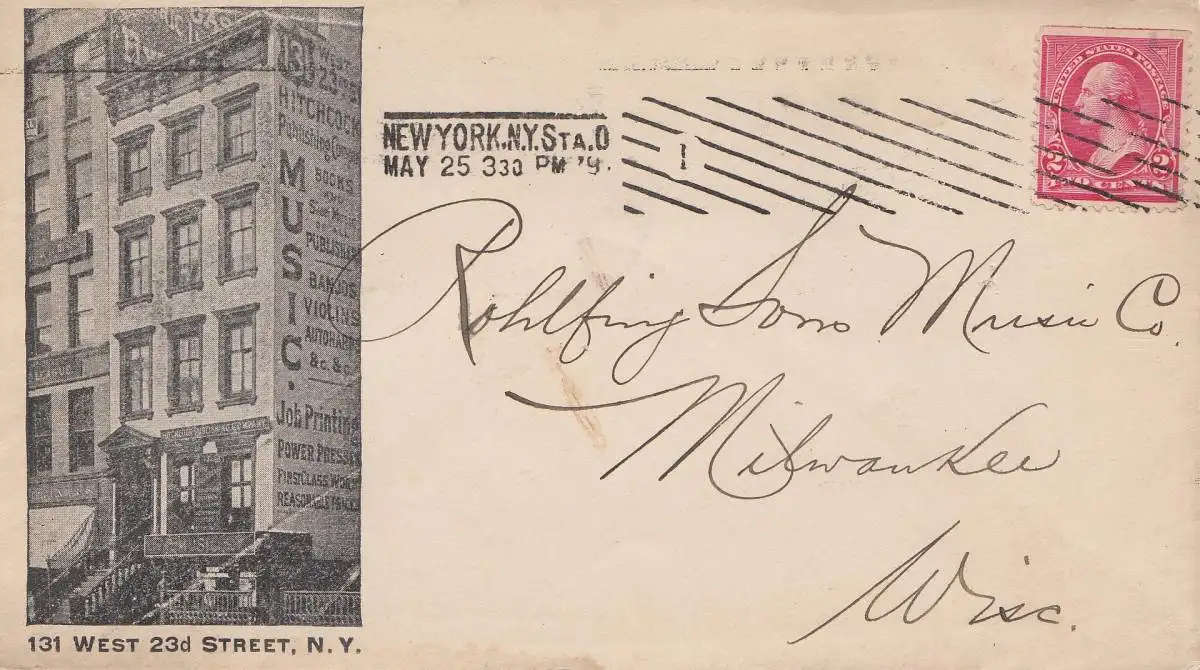 131 WEST
23RD
HITCHCOCK
Publishing
MUSIC.
BOOKS
AND
PUBLISHE
BANJOS
VIOLINS
AUTOHARP
&c. &c.
Job Printing
POWER PRESSES
FIRST CLASS WORK
REASONABLE
131 WEST 23d STREET, N.Y.
NEW YORK.N.Y. STA.O
MAY 25 3 30 PM '9.
1
UNITED STATES POSTAGE
2 2
TWO CENTS
Rohlfing Sons Music Co.
Milwaukee
Wisc.